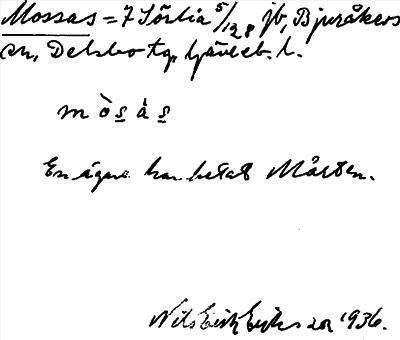 Mossas = 7 Sörlia 5/128 jb, Bjuråkers
sn, Delsbo tg, Gävleb. l.
m ò s å s
En ägare har hetat Mårten.
Nils Erik Eriksson 1936.